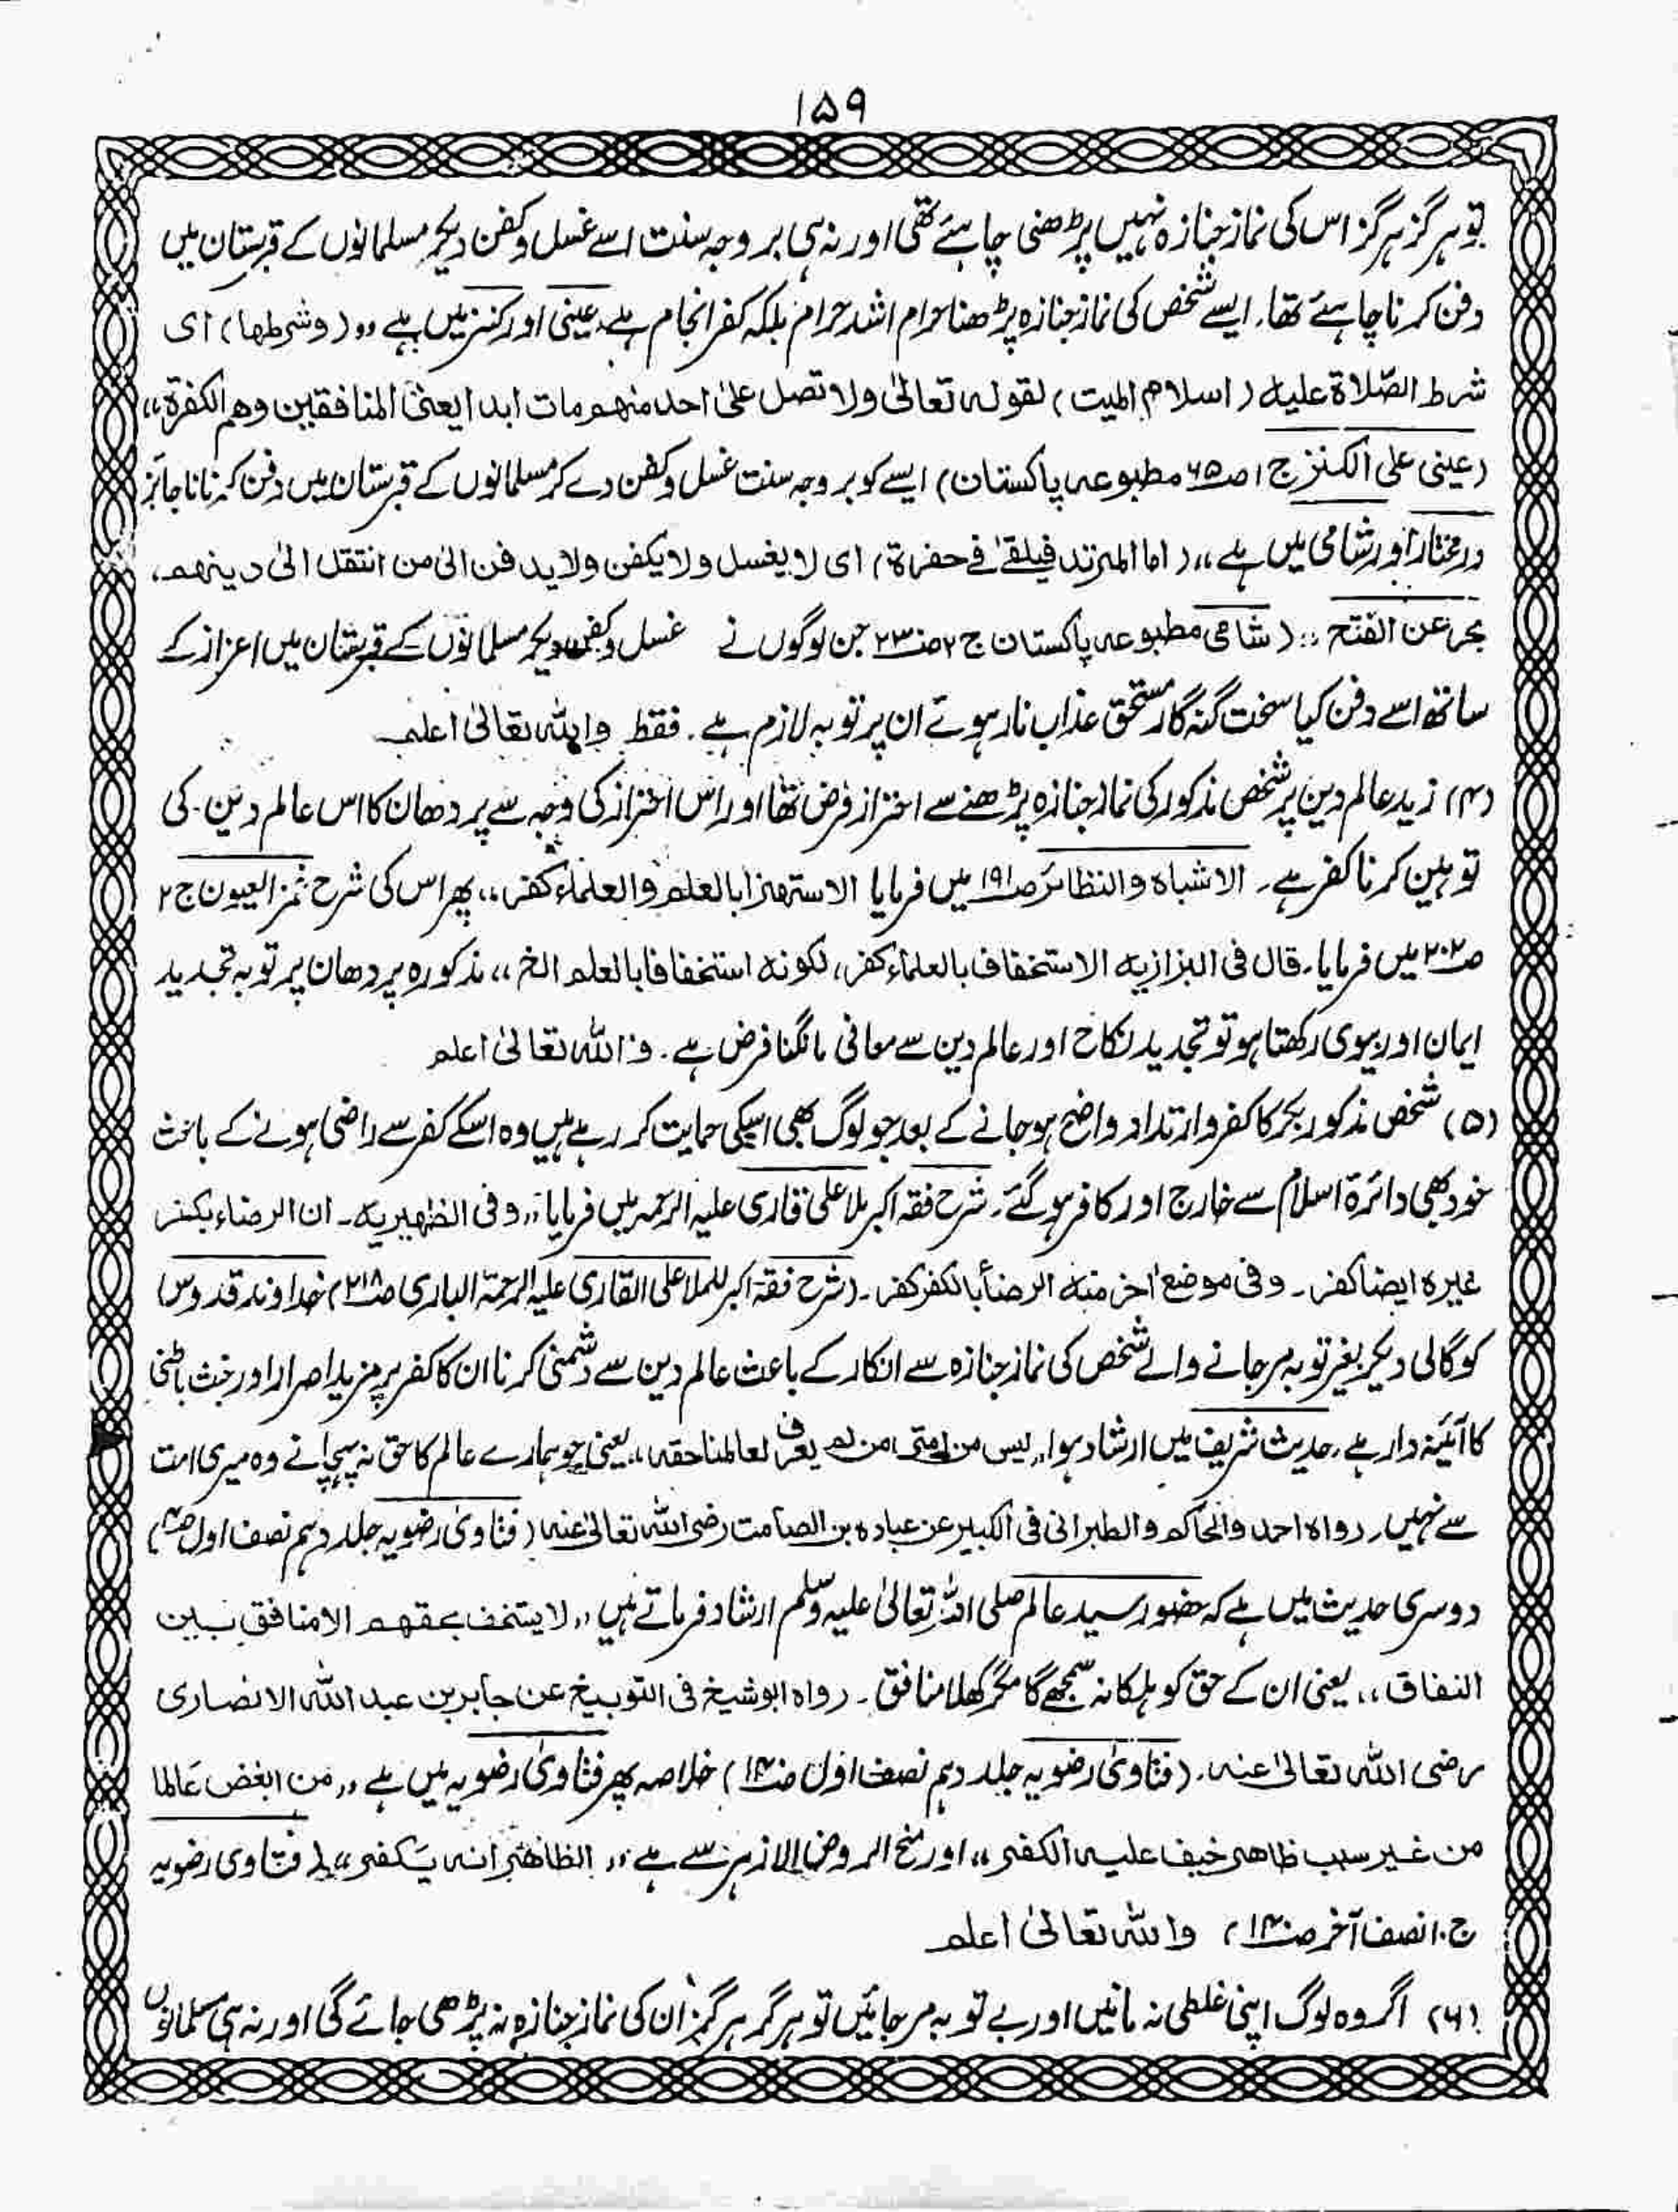 ۱۵۹
تو ہرگز ہرگز اس کی نماز جنازہ نہیں پڑھنی چاہئے تھی اور نہ ہی بر وجہ سنت اسے غسل و کفن دیکر مسلمانوں کے قبرستان میں
دفن کرنا چاہئے تھا۔ ایسے شخص کی نماز جنازہ پڑھنا حرام اشد حرام بلکہ کفر انجام ہے۔ عینی اور کنز میں ہے ,,(وشرطها) ای
شرط الصّلاة علیه (اسلام المیت) لقوله تعالیٰ ولا تصل علیٰ احد منهم مات ابدا یعنی المنافقین وهم الکفرة،،
(عینی علی الکنز ج ۱ ص۶۵ مطبوعہ پاکستان) ایسے کو بر وجہ سنت غسل و کفن دے کر مسلمانوں کے قبرستان میں دفن کرنا ناجائز
درمختار اور شامی میں ہے ,,(اما المرتد فیلقیٰ فی حفرة) ای لا یغسل ولا یکفن ولا یدفن الیٰ من انتقل الیٰ دینهم،
بحر عن الفتح ،،(شامی مطبوعہ پاکستان ج ۲ ص۲۳۰ جن لوگوں نے غسل و کفن دیکر مسلمانوں کے قبرستان میں اعزاز کے
ساتھ اسے دفن کیا سخت گنہ گار مستحق عذاب نار ہوئے ان پر توبہ لازم ہے۔ فقط واللہ تعالیٰ اعلم
(۴) زید عالم دین پر شخص مذکور کی نماز جنازہ پڑھنے سے احتراز فرض تھا اور اس احتراز کی وجہ سے پردھان کا اس عالم دین کی
توہین کرنا کفر ہے۔ الاشباہ والنظائر ص۱۹۱ میں فرمایا الاستهزا بالعلم والعلماء کفر،، پھر اس کی شرح غمز العیون ج ۲
ص۲۰۲ میں فرمایا۔ قال فی البزازیه الاستخفاف بالعلماء کفر، لکونه استخفافا بالعلم الخ،، مذکورہ پردھان پر توبہ تجدید
ایمان اور بیوی رکھتا ہو تو تجدید نکاح اور عالم دین سے معافی مانگنا فرض ہے۔ واللہ تعالیٰ اعلم
(۵) شخص مذکور بکر کا کفر و ارتداد واضح ہو جانے کے بعد جو لوگ بھی اسکی حمایت کر رہے ہیں وہ اسکے کفر سے راضی ہونے کے باعث
خود بھی دائرۂ اسلام سے خارج اور کافر ہو گئے۔ شرح فقہ اکبر ملا علی قاری علیہ الرحمہ میں فرمایا ,,وفی الظهیریه۔ ان الرضاء بکفر
غیره ایضا کفر۔ وفی موضع اٰخر منه الرضأ بالکفر کفر۔ (شرح فقہ اکبر للملا علی القاری علیہ الرحمۃ الباری ص۲۱۸) خداوند قدوس
کو گالی دیکر بغیر توبہ مر جانے والے شخص کی نماز جنازہ سے انکار کے باعث عالم دین سے دشمنی کرنا ان کا کفر پر مزید اصرار اور خبث باطنی
کا آئینہ دار ہے۔ حدیث شریف میں ارشاد ہوا ,,لیس من امتی من لم یعرف لعالمنا حقه،، یعنی جو ہمارے عالم کا حق نہ پہچانے وہ میری امت
سے نہیں۔ رواه احمد والحاکم والطبرانی فی الکبیر عن عباده بن الصامت رضی اللہ تعالیٰ عنہ (فتاویٰ رضویہ جلد دہم نصف اول
دوسری حدیث میں ہے کہ حضور سید عالم صلی اللہ تعالیٰ علیہ وسلم ارشاد فرماتے ہیں ,,لا یستخف بحقهم الا منافق بین
النفاق،، یعنی ان کے حق کو ہلکا نہ سمجھے گا مگر کھلا منافق۔ رواه ابو شیخ فی التوبیخ عن جابر بن عبد الله الانصاری
رضی اللہ تعالیٰ عنہ۔ (فتاویٰ رضویہ جلد دہم نصف اول ص۱۴۰) خلاصہ پھر فتاویٰ رضویہ میں ہے ,,من ابغض عالما
من غیر سبب ظاهر خیف علیه الکفر،، اور منح الروض الازہر سے ہے ,,الظاهر انه یکفر،، (فتاوی رضویہ
ج ۱۰ نصف آخر ص۱۴۰) واللہ تعالیٰ اعلم
(۶) اگر وہ لوگ اپنی غلطی نہ مانیں اور بے توبہ مر جائیں تو ہرگز ہرگز ان کی نماز جنازہ نہ پڑھی جائے گی اور نہ ہی مسلمانوں